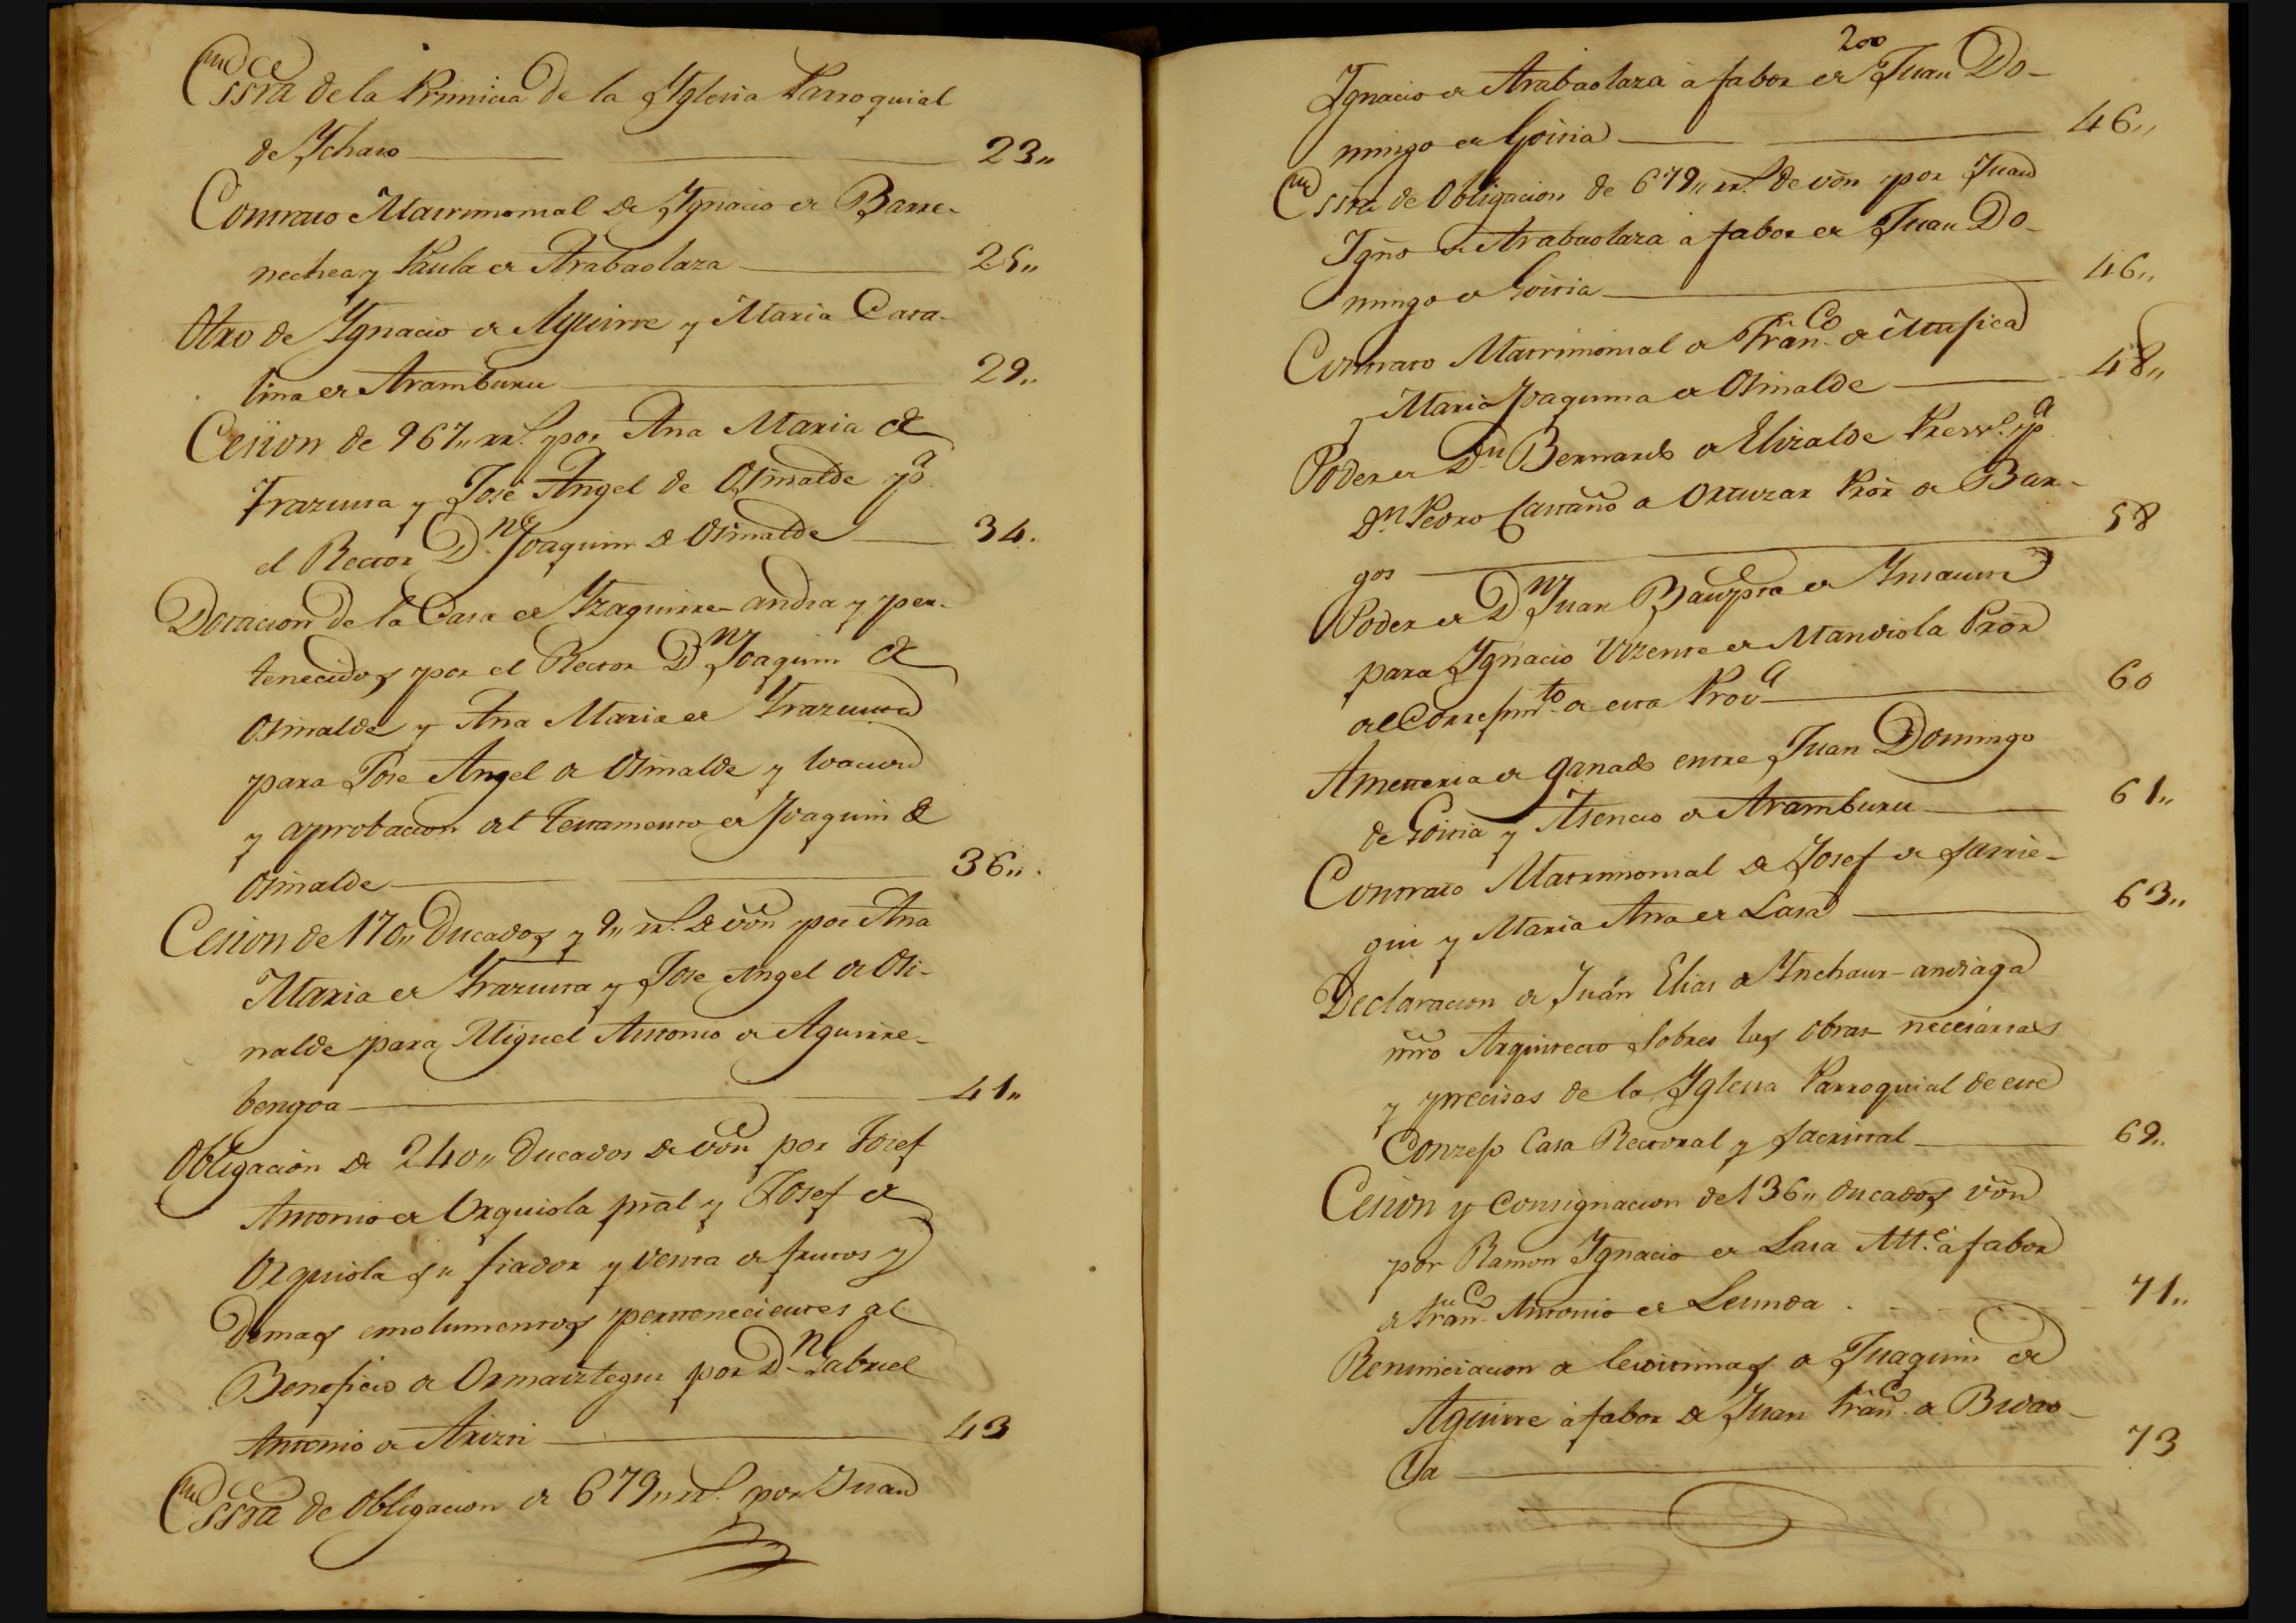 Essra de la Primicia de la Yglesia Parroquial
de Ychaso 23,,
Contrato Matrimonial de Ygnacio de Barre-
nechea y Paula de Arabaolaza 25,,
Otro de Ygnacio de Aguirre y Maria Cata-
lina de Aramburu 29,,
Cesion de 967,, rr.s por Ana Maria de
Yrazusta y José Angel de Osinalde p.a
el Rector D.n Joaquin de Osinalde 34.
Dotacion de la Casa de Yzaguirre-andia y per-
tenecidos por el Rector D.n Joaquin de
Osinalde y Ana Maria de Yrazusta
para Jose Angel de Osinalde y
y aprobacion del testamento de Joaquin de
Osinalde 36,,
Cesion de 170,, Ducados y 9,, rr.s de von por Ana
Maria de Yrazusta y Jose Angel de Osi-
nalde para Miguel Antonio de Aguirre-
bengoa 41,,
Obligacion de 240,, Ducados de von por Josef
Antonio de Urquiola pral y Josef de
Urquiola su fiador y venta de frutos y
demas emolumentos pertenecientes al
Beneficio de Ormaiztegui por D.n Gabriel
Antonio de Arizti 43
Essra de Obligacion de 679,, rr.s por Juan
200
Ygnacio de Arabaolaza à fabor de Juan Do-
mingo de Goiria 46,,
Essra de Obligacion de 679,, rr.s de von por Juan
Ygño de Arabaolaza à fabor de Juan Do-
mingo de Goiria 46,,
Contrato Matrimonial de Fran.co de Mufica
y Maria Joaquina de Osinalde 48,,
Poder de D.n Bernardo de Elizalde Presv.o p.a
D.n Pedro Castaño de Ortuzar Pror de Bur-
gos 58
Poder de D.n Juan Baup.ta de
para Ygnacio Vizente de Mandiola Pror
del Correfim.to de esta Prov.a 60
Ametteria de ganado entre Juan Domingo
de Goiria y Asencio de Aramburu 61,,
Contrato Matrimonial de Josef de Sarrie-
gui y Maria Ana de Lasa 63,,
Declaracion de Juán Elias de Ynchaur-andiaga
mro Arquitecto sobres las obras necesarias
y precisas de la Yglesia Parroquial de este
Conzejo Casa Rectoral y sacristal 69,,
Cesion y Consignacion de 136,, ducados von
por Ramon Ygnacio de Lasa Att.e à fabor
de Fran.co Antonio de Lesunda 71,,
Renunciacion de lexitimas de Juaquin de
Aguirre à fabor de Juan Fran.co de Bidao-
la 73